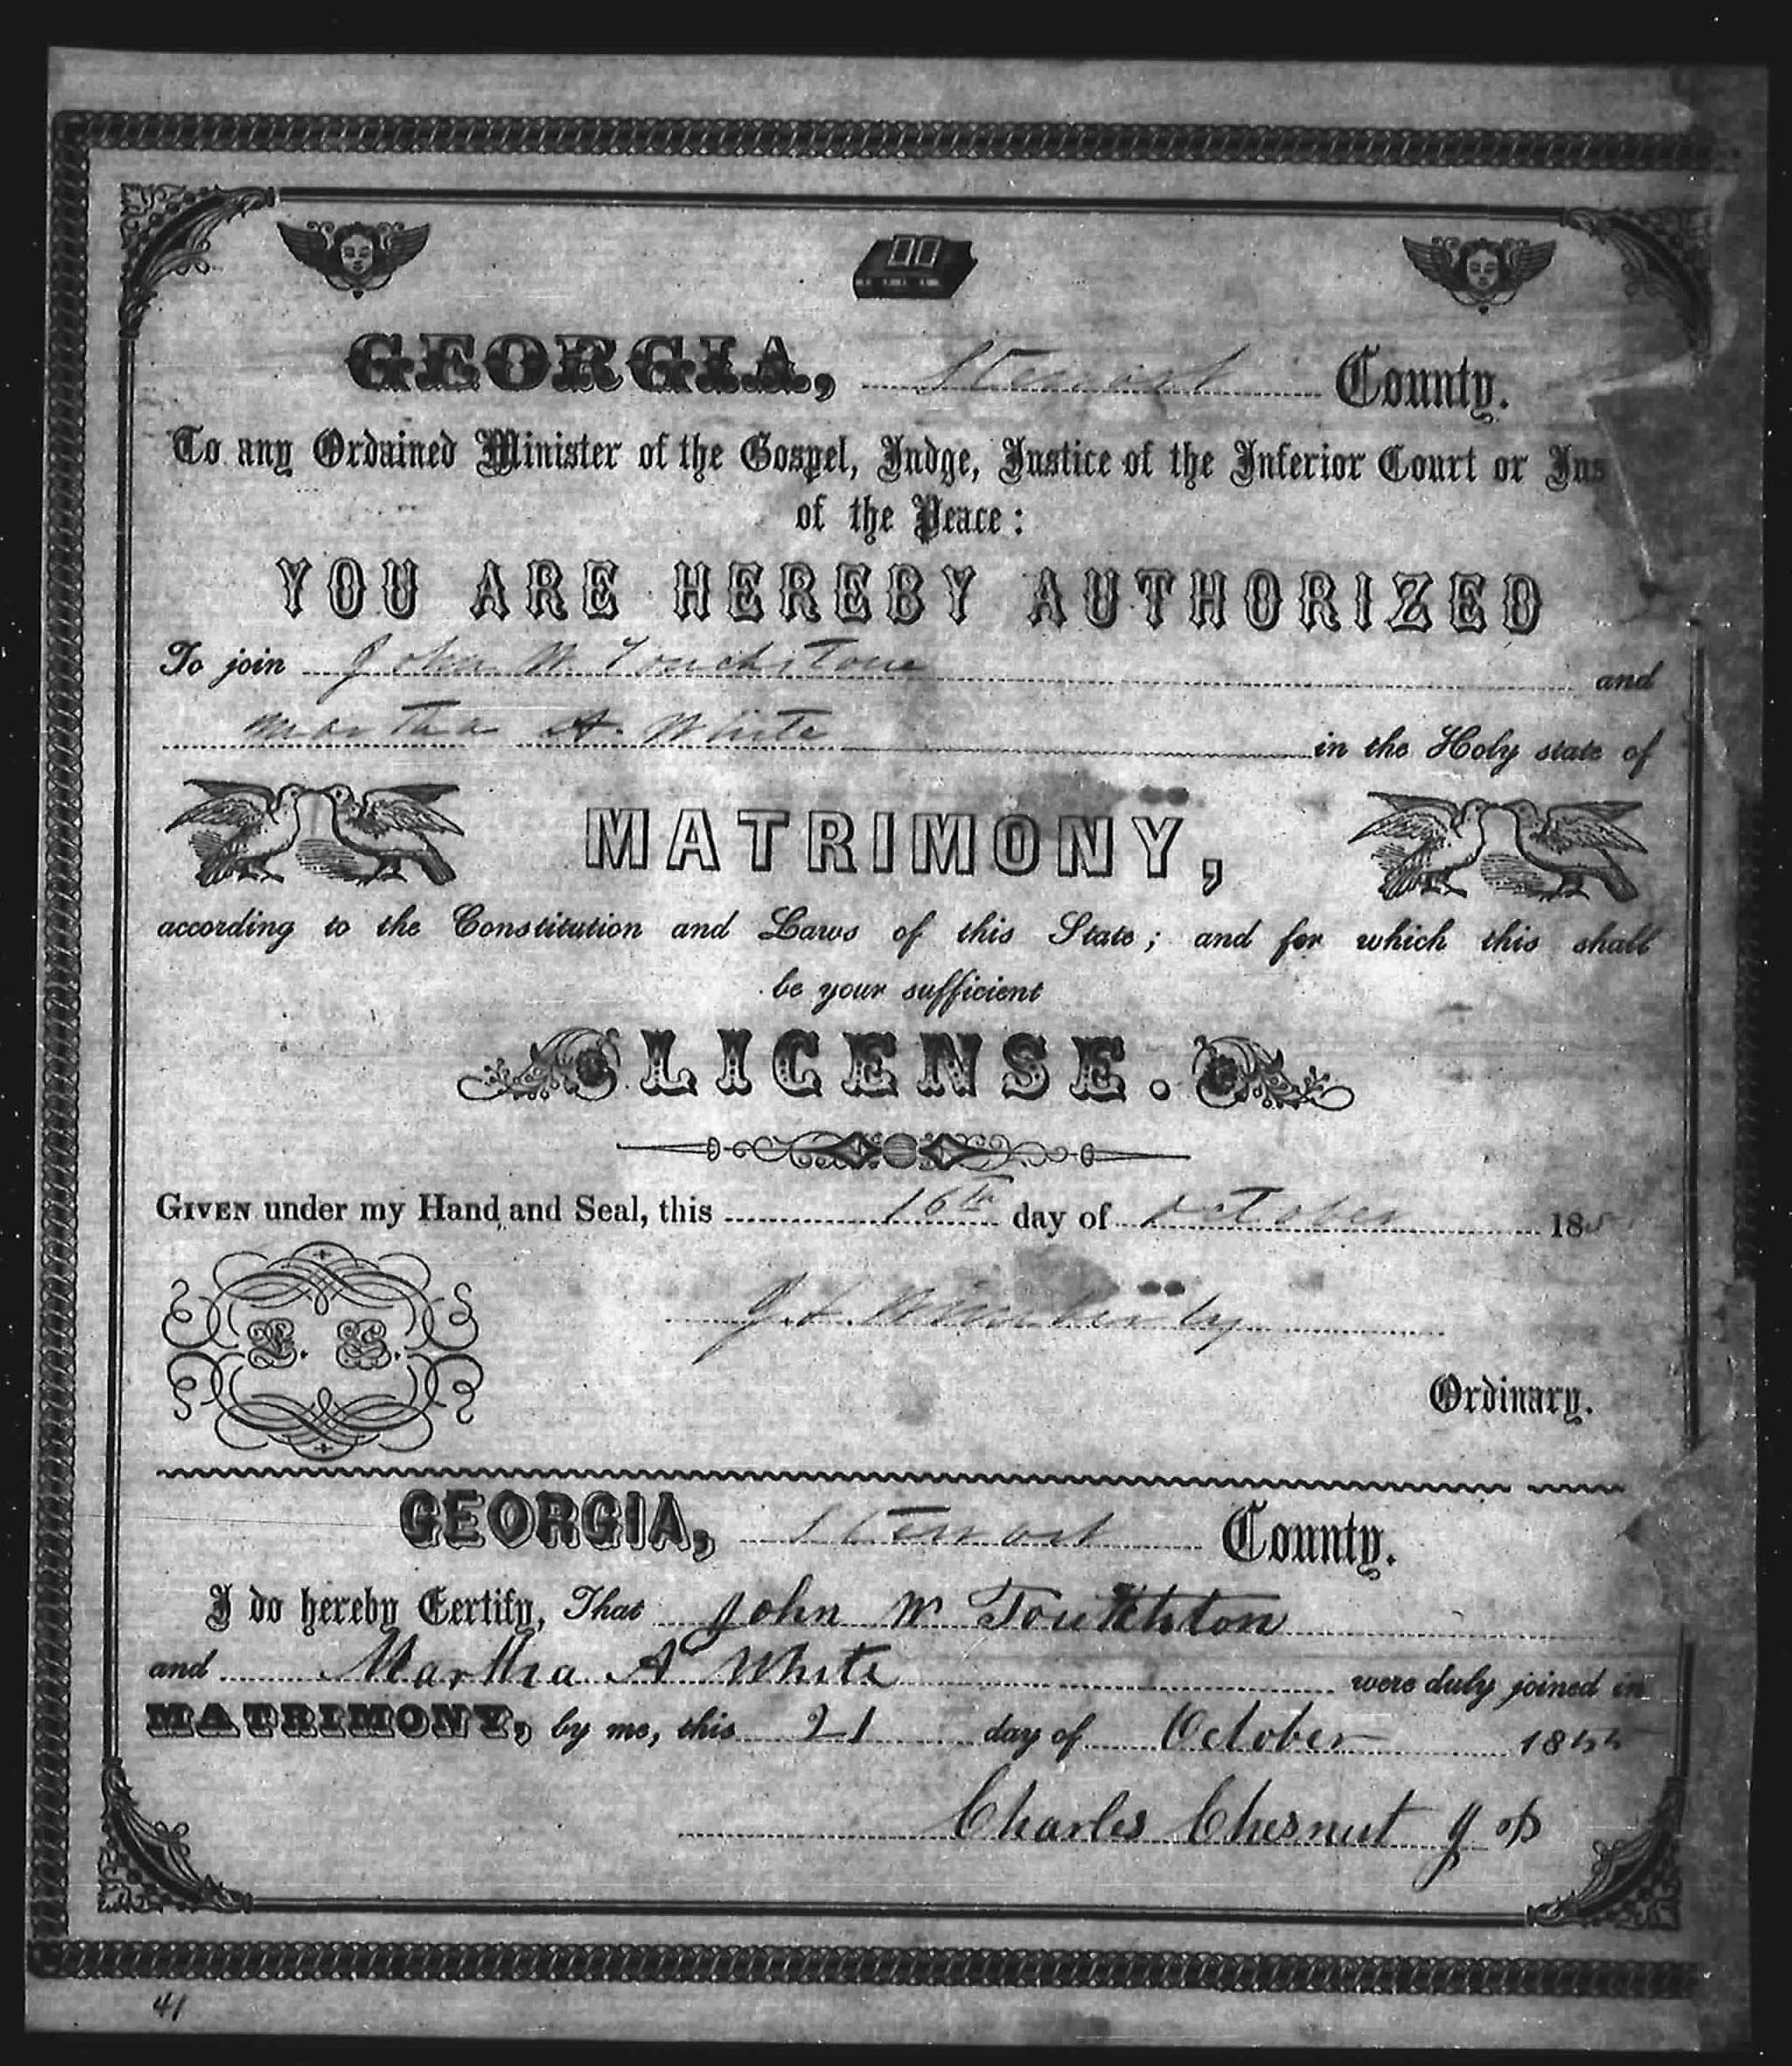 GEORGIA, Stewart County.
To any Ordained Minister of the Gospel, Judge, Justice of the Inferior Court or Jus
of the Peace:
YOU ARE HEREBY AUTHORIZED
To join John W. Touchstone and
Martha A. White in the Holy state of
MATRIMONY,
according to the Constitution and Laws of this State; and for which this shall
be your sufficient
LICENSE.
GIVEN under my Hand and Seal, this 16th day of October 185
L. S.
J. L. Wimberly
Ordinary.
GEORGIA, Stewart County.
I do hereby Certify, That John W Touchston
and Martha A White were duly joined in
MATRIMONY, by me, this 21 day of October 1855
Charles Chesnut J P
41